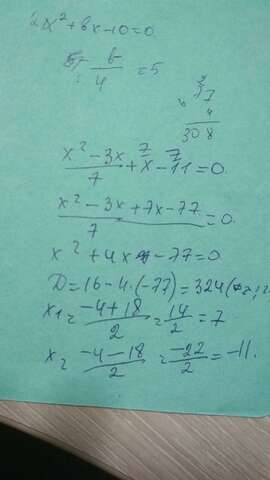 2x² + bx - 10 = 0.
- b/4 = 5
77
4
308
(x² - 3x)/7 + x - 11 = 0.
7 7
(x² - 3x + 7x - 77)/7 = 0.
x² + 4x - 77 = 0
D = 16 - 4·(-77) = 324
x₁ = (-4 + 18)/2 = 14/2 = 7
x₂ = (-4 - 18)/2 = -22/2 = -11.